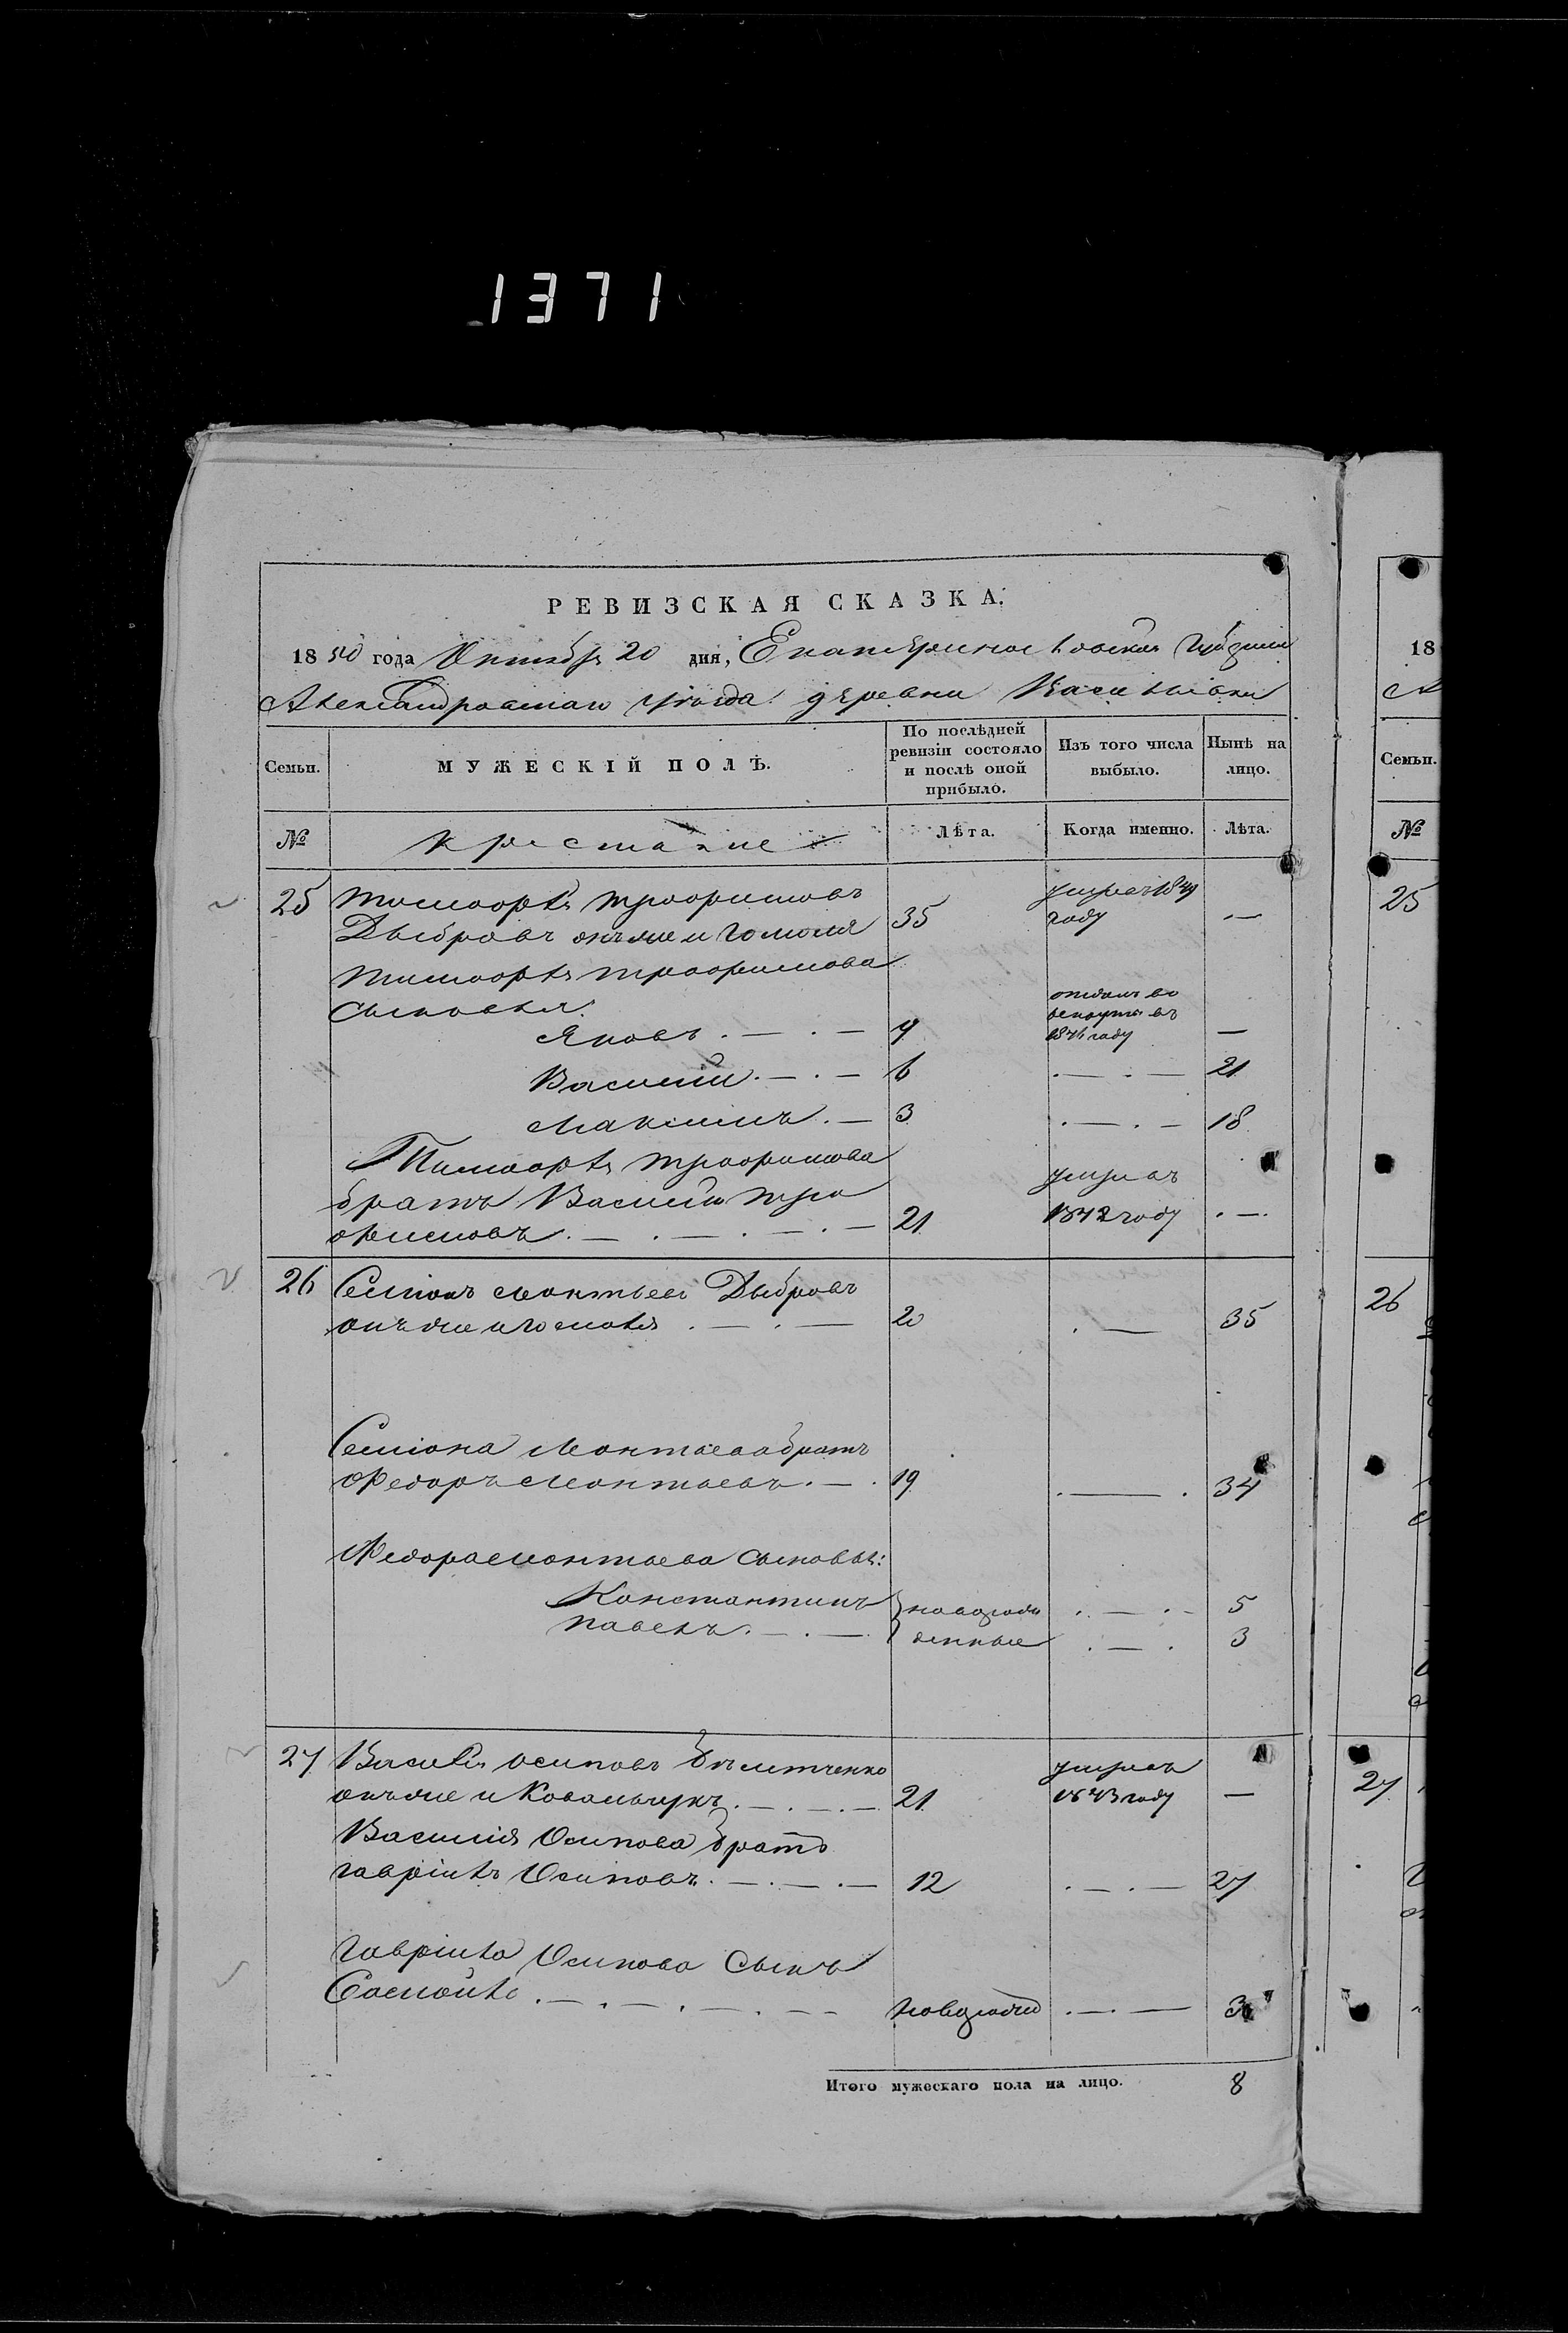 1371
РЕВИЗСКАЯ СКАЗКА.
1850 года Октября 20 дня, Екатеринославской Губернии
Александровскаго уѣзда деревни
Семьи.
МУЖЕСКІЙ ПОЛЪ.
По послѣдней
ревизіи состояло
и послѣ оной
прибыло.
Изъ того числа
выбыло.
Нынѣ на
лицо.
№
Крестьяне
Лѣта.
Когда именно.
Лѣта.
25 Тимофей Трофимовъ 35 умеръ 1849 —
онъ же и году
Тимофея Трофимова
Сыновья:
Яковъ . — . — 9 отданъ въ рекруты въ 1846 году —
Василий . — . — 6 . — . — 21
Максимъ . — 3 . — . — 18
Тимофея Трофимова
братъ Василий Тро умеръ
фимовъ . — . — . — . — 21 1842 году . — .
26 Семіонъ Леонтьевъ
онъ же и . — . — 20 . — 35
Семіона Леонтьева братъ
Федоръ Леонтьевъ . — . 19 . — . 34
Федора Леонтьева сыновья:
Константинъ новорож . — . — 5
Павелъ . — . — . денные . — . 3
27 Василий Осиповъ умеръ
онъ же и Ковальчукъ . — . — . — 21 1843 году —
Василія Осипова братъ
Гавріилъ Осиповъ . — . — . — 12 . — . — 27
Гавріила Осипова Сынъ
Самойло . — . — . — . — — новорожд . — . — 3
Итого мужескаго пола на лицо. 8
18
Семьи.
№
25
26
27